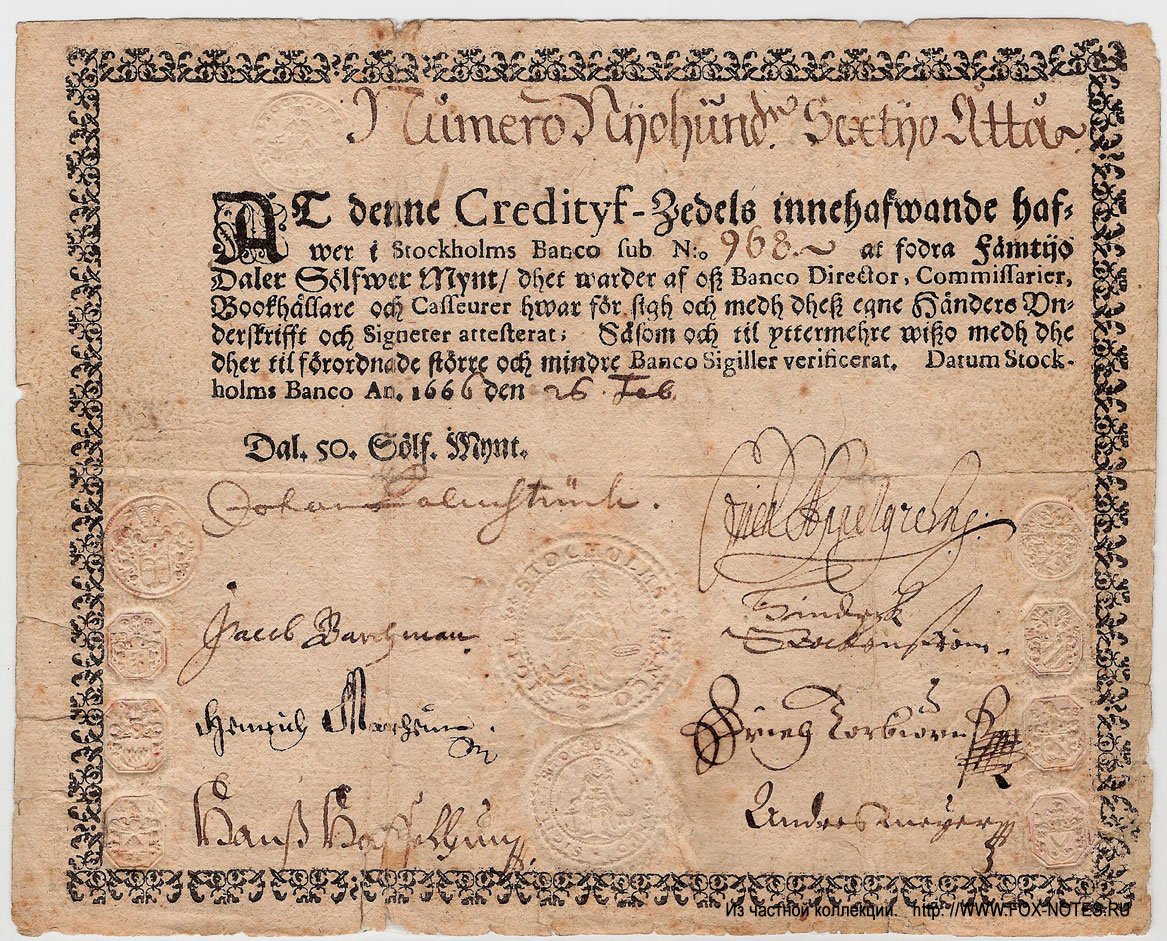 Numero Nijohundr. Sextijo Åtta
AT denne Credityf-Zedels innehafwande haf-
wer i Stockholms Banco sub N:o 968. at fodra Fämtijo
Daler Sölfwer Mynt/ dhet warder af oß Banco Director, Commissarier,
Bookhållare och Casseurer hwar för sigh och medh dheß egne Händers Vn-
derskrifft och Signeter attesterat; Såsom och til yttermehre wißo medh dhe
dher til förordnade större och mindre Banco Sigiller verificerat. Datum Stock-
holms Banco An. 1666 den 26 Feb.
Dal. 50. Sölf. Mynt.
Johan Palmstrüch.
STOCHOLMS BANCO
Jacob Barchman
Hindrich
Henrich
Hanß
Anders Meijer
STOCHOLMS
Из частной коллекции. http://WWW.FOX-NOTES.RU